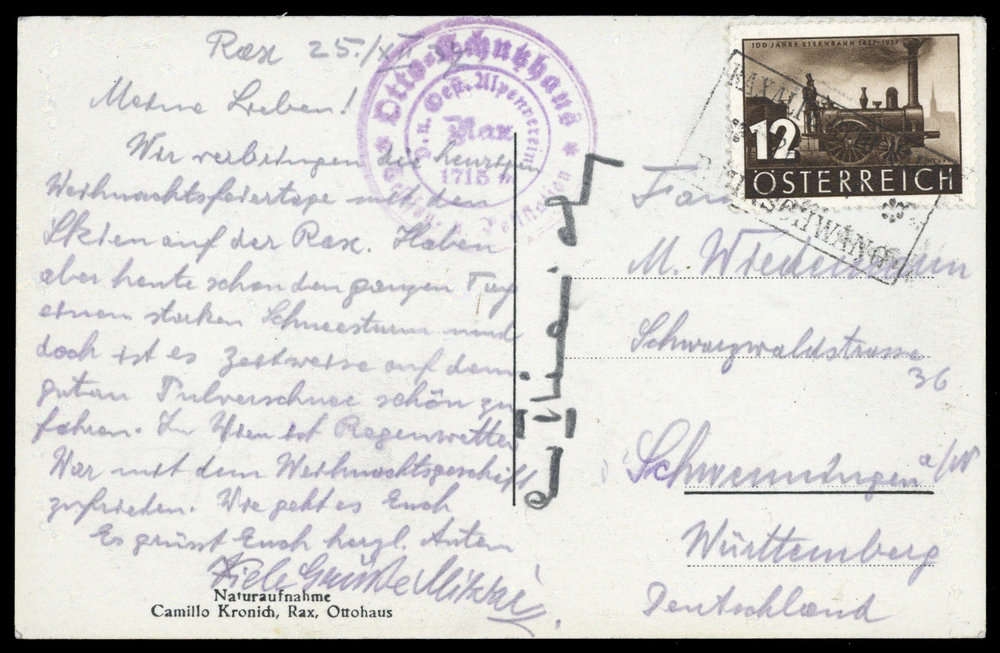 Rax 25./XII.
Meine Lieben!
Wir verbringen die heurigen
Weihnachtsfeiertage mit den
Skien auf der Rax. Haben
aber heute schon den ganzen Tag
einen starken Schneesturm und
doch ist es zeitweise auf dem
guten Pulverschnee schön zu
fahren. In Wien ist Regenwetter
War mit dem Weihnachtsgeschäft
zufrieden. Wie geht es Euch
Es grüsst Euch herzl. Anton
Viele Grüsse Mitzi
Naturaufnahme
Camillo Kronich, Rax, Ottohaus
Otto-Schutzhaus
d. u. Oest. Alpenverein
Rax
1715 m
100 JAHRE EISENBAHN 1837-1937
12
ÖSTERREICH
RAXALP
M.
Schwarzwaldstrasse
36
Schwenningen a/N
Württemberg
Deutschland